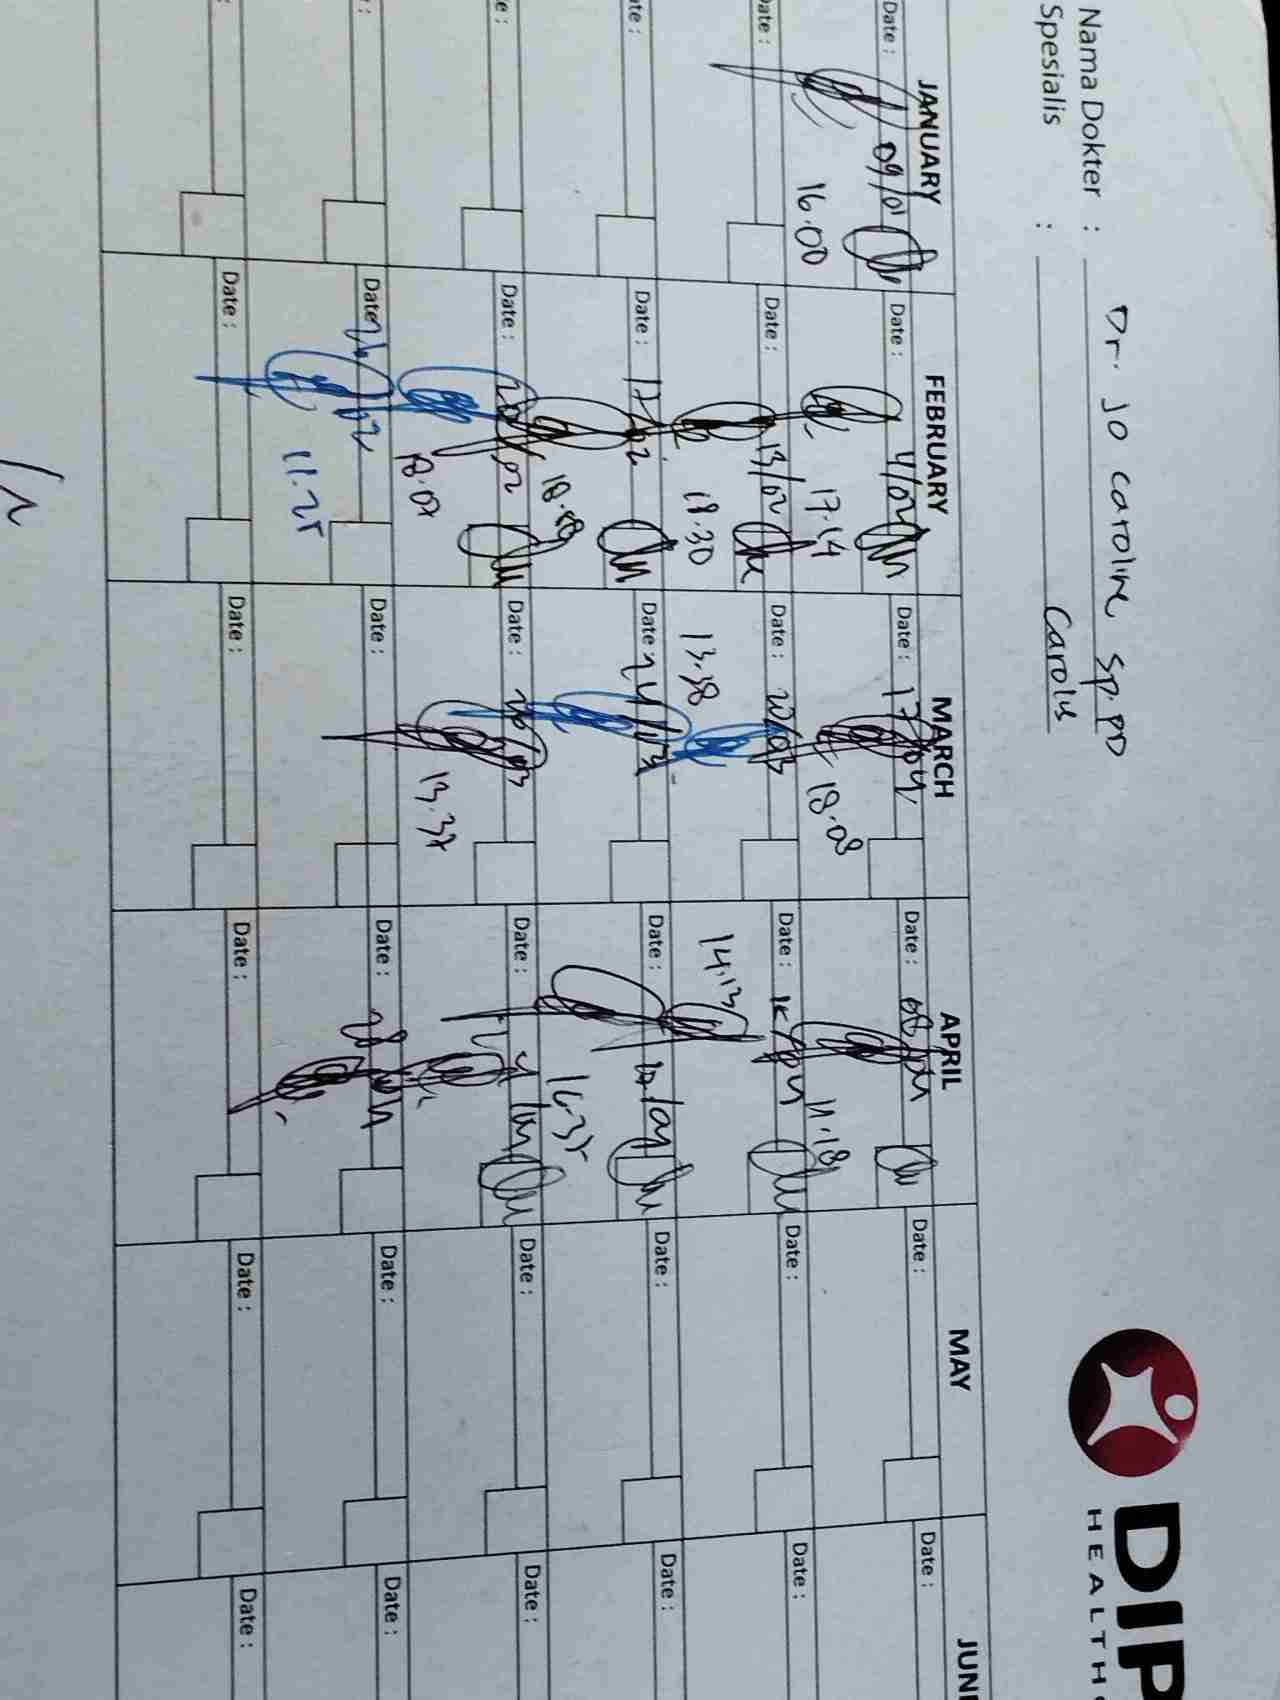 Nama Dokter : Dr. Jo Caroline Sp.PD
Spesialis : Carolus
DIP
HEALTH
JANUARY FEBRUARY MARCH APRIL MAY JUN
Date : 09/01
16.00
Date : 4/02
17.14
Date : 13/02
18.30
Date : 17/02
Date : 20/02
18.07
Date : 26/02
11.25
Date :
Date : 17/04
18.08
Date : 20/03
13.38
Date : 24/03
Date : 26/03
13.37
Date :
Date :
Date : 08/04
11.18
Date : 15/04
14.13
Date : 17/04
16.35
Date :
Date : 28/04
Date :
Date :
Date :
Date :
Date :
Date :
Date :
Date :
Date :
Date :
Date :
Date :
Date :